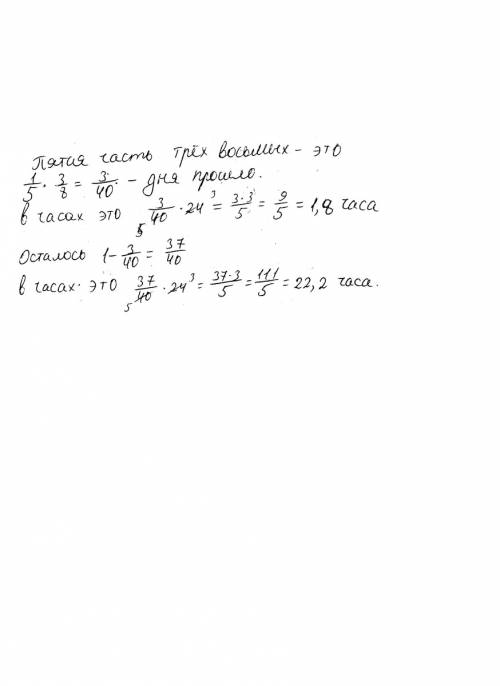 Пятая часть трёх восьмых - это
1/5 · 3/8 = 3/40 - дня прошло.
в часах это 3/40 · 24 = 3·3/5 = 9/5 = 1,8 часа
5 3
Осталось 1 - 3/40 = 37/40
в часах это 37/40 · 24 = 37·3/5 = 111/5 = 22,2 часа.
5 3